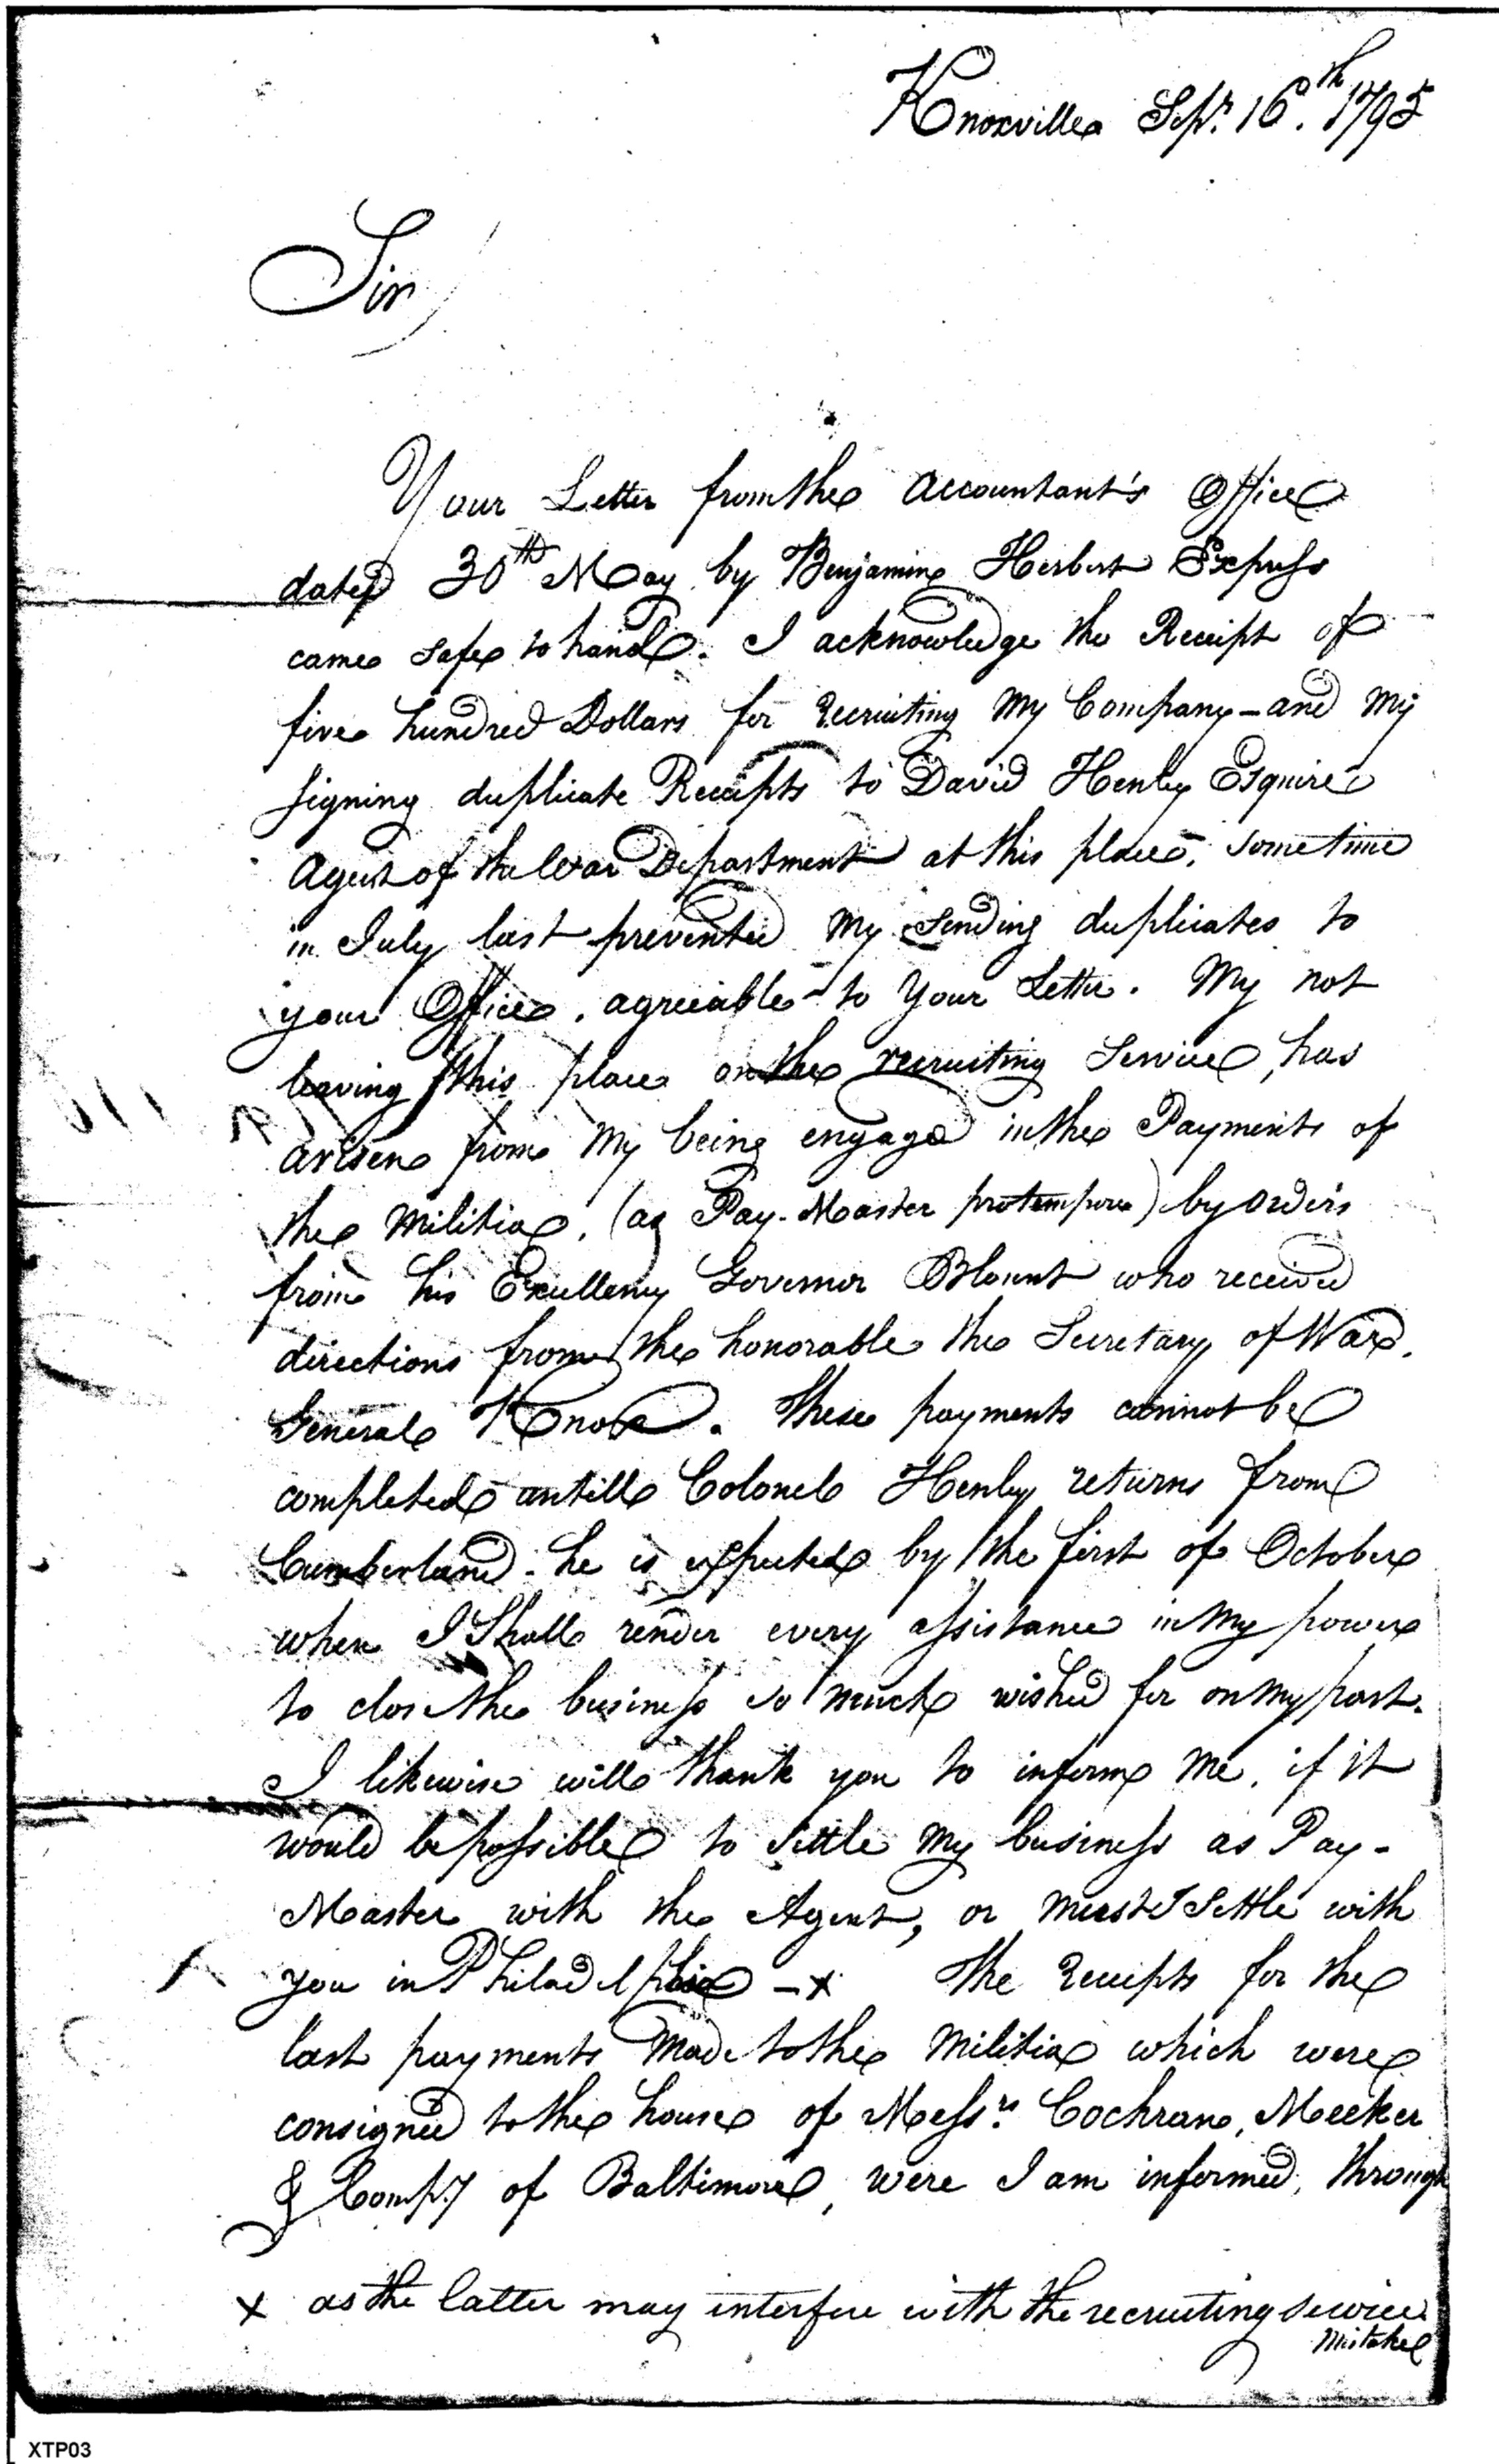 Knoxville Sepr. 16th. 1795
Sir
Your Letter from the Accountant's Office
dated 30th May by Benjamin Herbert Express
came safe to hand. I acknowledge the Receipt of
five hundred Dollars for recruiting my Company - and my
signing duplicate Receipts to David Henley Esquire
Agent of the War Department at this place, sometime
in July last prevented my sending duplicates to
your Office, agreeable to your Letter. My not
leaving this place on the recruiting Service, has
arisen from my being engagd in the Payments of
the Militia, (as Pay-Master protempore) by orders
from his Excellency Governor Blount who received
directions from the honorable the Secretary of War,
General Knox. These payments cannot be
completed untill Colonel Henley returns from
Cumberland - he is expected by the first of October
when I Shall render every assistance in my power
to close the business so much wished for on my part.
I likewise will thank you to inform me, if it
would be possible to settle my business as Pay-
Master with the Agent, or must I Settle with
you in Philadelphia - x The Receipts for the
last payments made to the Militia which were
consigned to the house of Messrs. Cochran, Meeker
& Compy of Baltimore, were I am informed, through
x as the latter may interfere with the recruiting service
mistake
XTP03